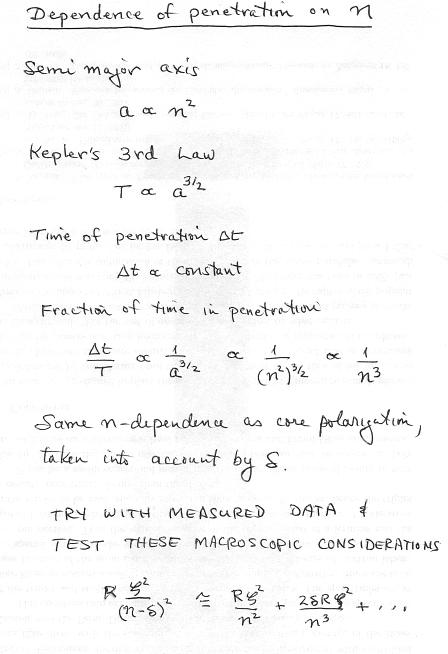 Dependence of penetration on n
Semi major axis
a ∝ n²
Kepler's 3rd Law
T ∝ a^3/2
Time of penetration Δt
Δt ∝ constant
Fraction of time in penetration
Δt/T ∝ 1/a^3/2 ∝ 1/(n²)^3/2 ∝ 1/n³
Same n-dependence as core polarization,
taken into account by δ.
TRY WITH MEASURED DATA &
TEST THESE MACROSCOPIC CONSIDERATIONS
R ζ²/(n-δ)² ≅ Rζ²/n² + 2δRζ²/n³ + ...